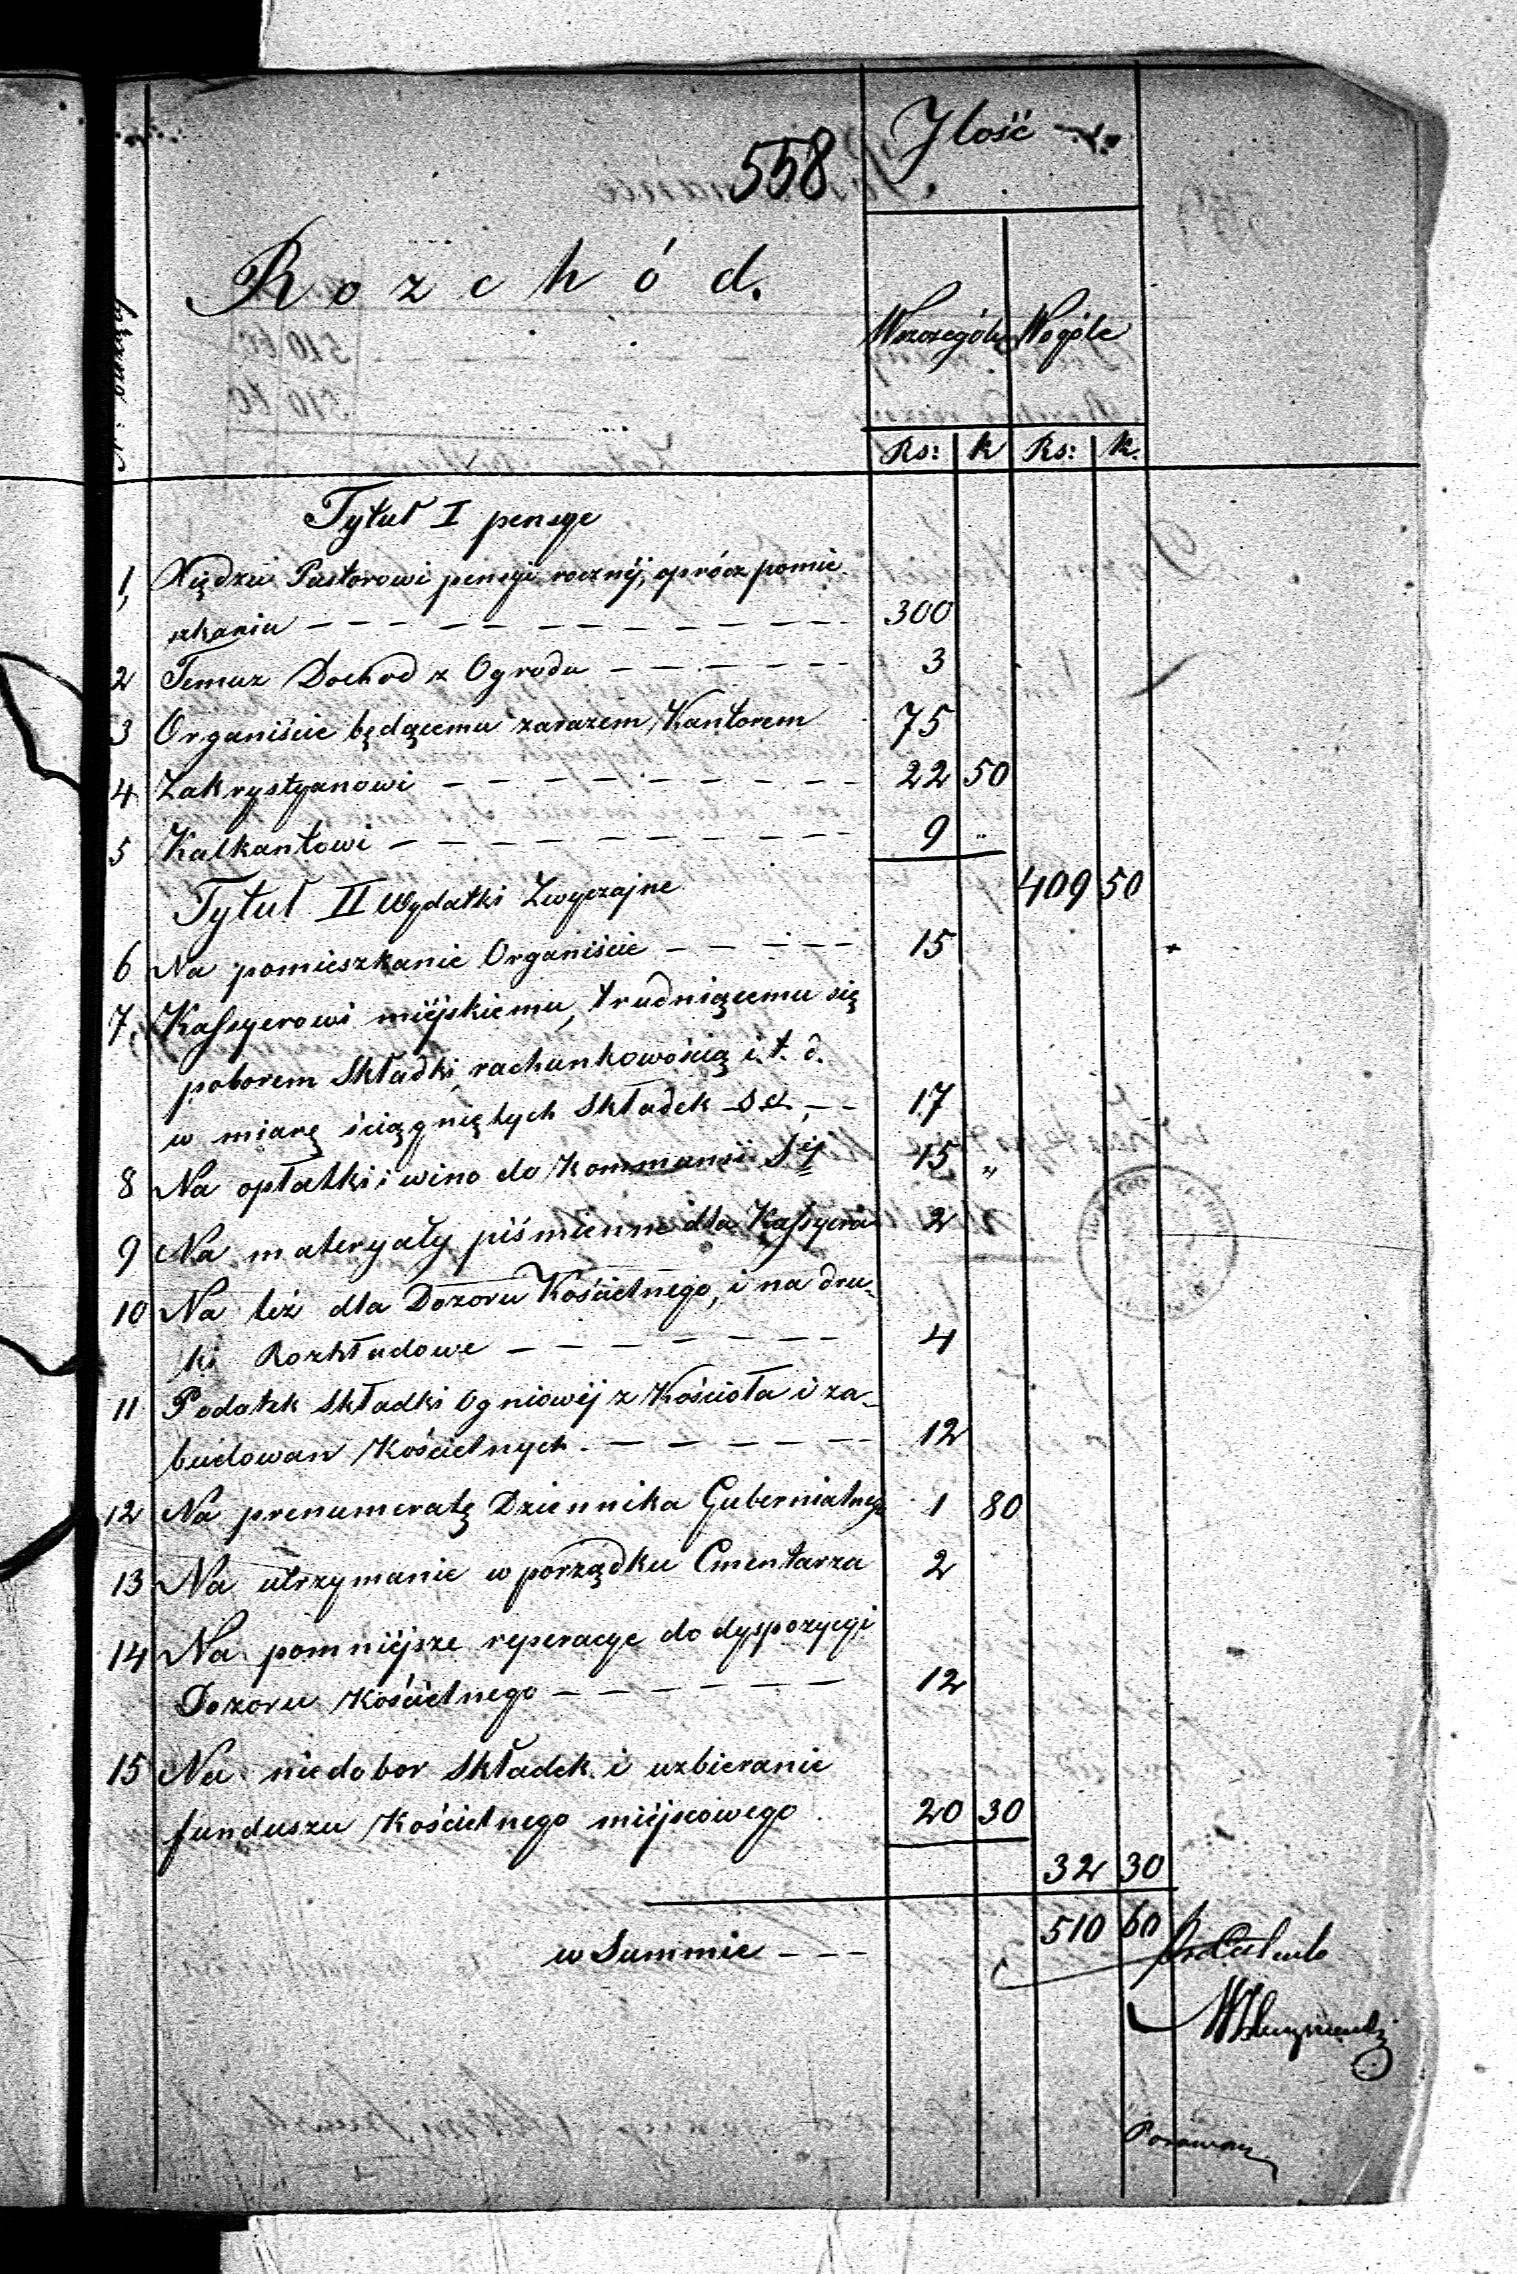 558
Jlość
Rozchód.
Wszczególe Wogóle
Rs: k Rs: k.
Tytuł I pensye
1, Xiędzu Pastorowi pensyi rocznéj, oprócz pomie
szkania — — — 300
2 Temuz Dochod z Ogrodu — — — 3
3 Organiście będącemu zarazem Kantorem 75
4 Zakrystyanowi — — — 22 50
5 Kalkantowi — — — 9 "
409 50
Tytuł II Wydatki Zwyczajne
6 Na pomieszkanie Organiście — — — 15
7, Kassyerowi miéjskiemu, trudniącemu się
poborem Składki, rachunkowością i. t. d.
w miarę ściągniętych Składek — — 17
8 Na opłatki i wino do Kommunii Sėj 15 "
9 Na materyały piśmienne dla Kassyera 2
10 Na też dla Dozoru Kościelnego, i na dru-
ki Rozkładowe — — — 4
11 Podatek Składki Ogniowéj z Kościoła i za-
budowan Kościelnych — — — 12
12 Na prenumeratę Dziennika Gubernialnego 1 80
13 Na utrzymanie w porządku Cmentarza 2
14 Na pomniéjsze reperacye do dyspozycyi
Dozoru Kościelnego — — — 12
15 Na niedobor Składek i uzbieranie
funduszu Kościelnego miéjscowego 20 30
32 30
w Summie — — — 510 60